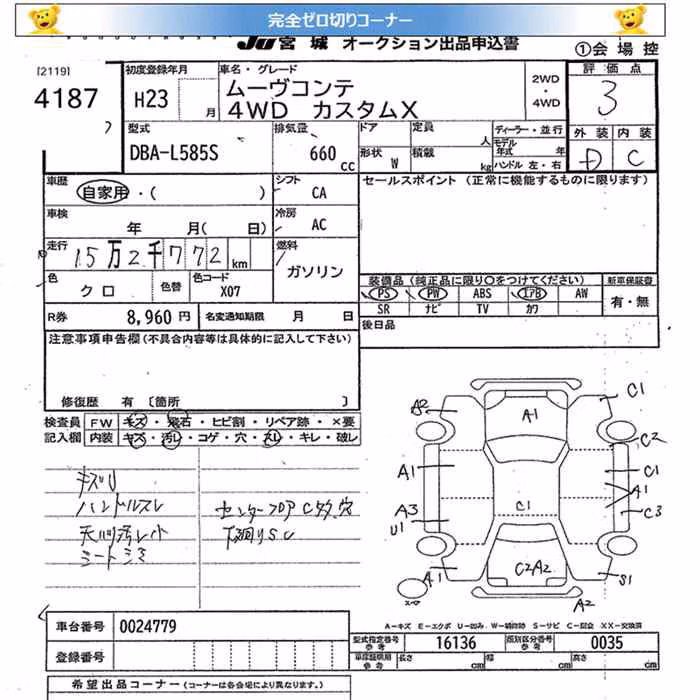 完全ゼロ切りコーナー
JU宮城 オークション出品申込書
①会場控
[2119]
4187
初度登録年月
H23 月
車名・グレード
ムーヴコンテ
4WD カスタムX
2WD
・
4WD
評価点
3
外装 内装
D C
型式
DBA-L585S
排気量
660 cc
ドア 定員 人
形状 W 積載 kg
ディーラー・並行
モデル年式 年
ハンドル 左・右
車歴
自家用・( )
シフト
CA
セールスポイント (正常に機能するものに限ります)
車検
年 月( 日)
冷房
AC
走行
15万2千772km
燃料
ガソリン
色
クロ
色替
色コード
X07
装備品(純正品に限り○をつけてください)
新車保証書
PS PW ABS エアB AW
SR ナビ TV カワ
有・無
R券 8,960円
名変通知期限 月 日
後日品
注意事項申告欄(不具合内容等は具体的に記入して下さい)
修復歴 有 [箇所 ]
検査員 FW キズ・飛石・ヒビ割・リペア跡・×要
記入欄 内装 キズ・汚レ・コゲ・穴・スレ・キレ・破レ
キズり
ハンドルスレ
天内汚レ小
シートシミ
センターフロアCタタ、穴
下廻りSC
A2
A1
C1
C2
A1
C1
A1
A3
U1
C1
C3
A1
C2A2
S1
A2
A-キズ E-エクボ U-凹み W-補修跡 S-サビ C-腐食 XX-交換済
車台番号 0024779
登録番号
型式指定番号 参考 16136
類別区分番号 参考 0035
車庫証明用 参考 長さ cm 幅 cm 高さ cm
希望出品コーナー (コーナーは各会場により異なります。)